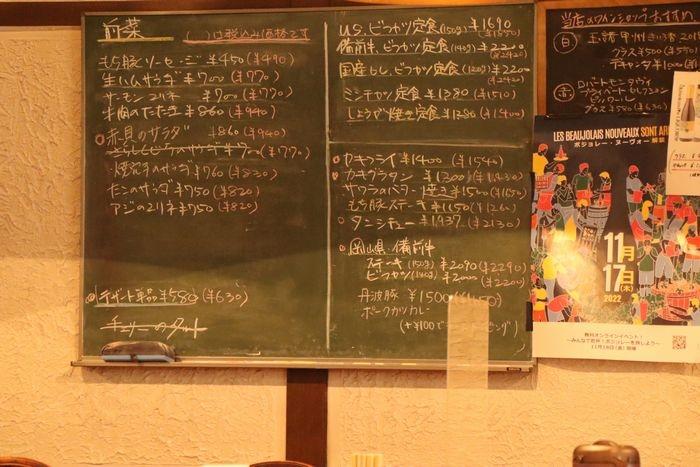 前菜
( )は税込み価格です
もち豚ソーセージ ¥450 (¥490)
生ハムサラダ ¥700 (¥770)
サーモンマリネ ¥700 (¥770)
牛肉のたたき ¥860 (¥940)
赤貝のサラダ ¥860 (¥940)
¥700 (¥770)
サラダ ¥760 (¥830)
たこのサラダ ¥750 (¥820)
アジのマリネ ¥750 (¥820)
デザート単品 ¥580 (¥630)
チェリーのタルト
U.S.ビフカツ定食(150g) ¥1690
備前牛ビフカツ定食(140g) ¥2220 (¥2420)
国産ヒレビフカツ定食(120g) ¥2200 (¥2420)
ミンチカツ定食 ¥1380 (¥1510)
しょうが焼き定食 ¥1280 (¥1400)
カキフライ ¥1400 (¥1540)
カキグラタン ¥1300 (¥1430)
サワラのバター焼き ¥1500 (¥1650)
もち豚ステーキ ¥1150 (¥1260)
タンシチュー ¥1937 (¥2130)
岡山県 備前牛
ステーキ(150g) ¥2090 (¥2290)
ビフカツ(140g) ¥2000 (¥2200)
丹波豚 ¥1500
ポークカツカレー
(+¥100で
当店のワインショップおすすめ
白
玉諸甲州きいろ 201
グラス ¥500 (¥550)
デキャンタ ¥1000
赤
ロバートモンダヴィ
プライベートセレクション
ピノノワール
グラス ¥580 (¥630)
LES BEAUJOLAIS NOUVEAUX SONT ARR
ボジョレー・ヌーヴォー 解禁
11月
17日(木)
2022